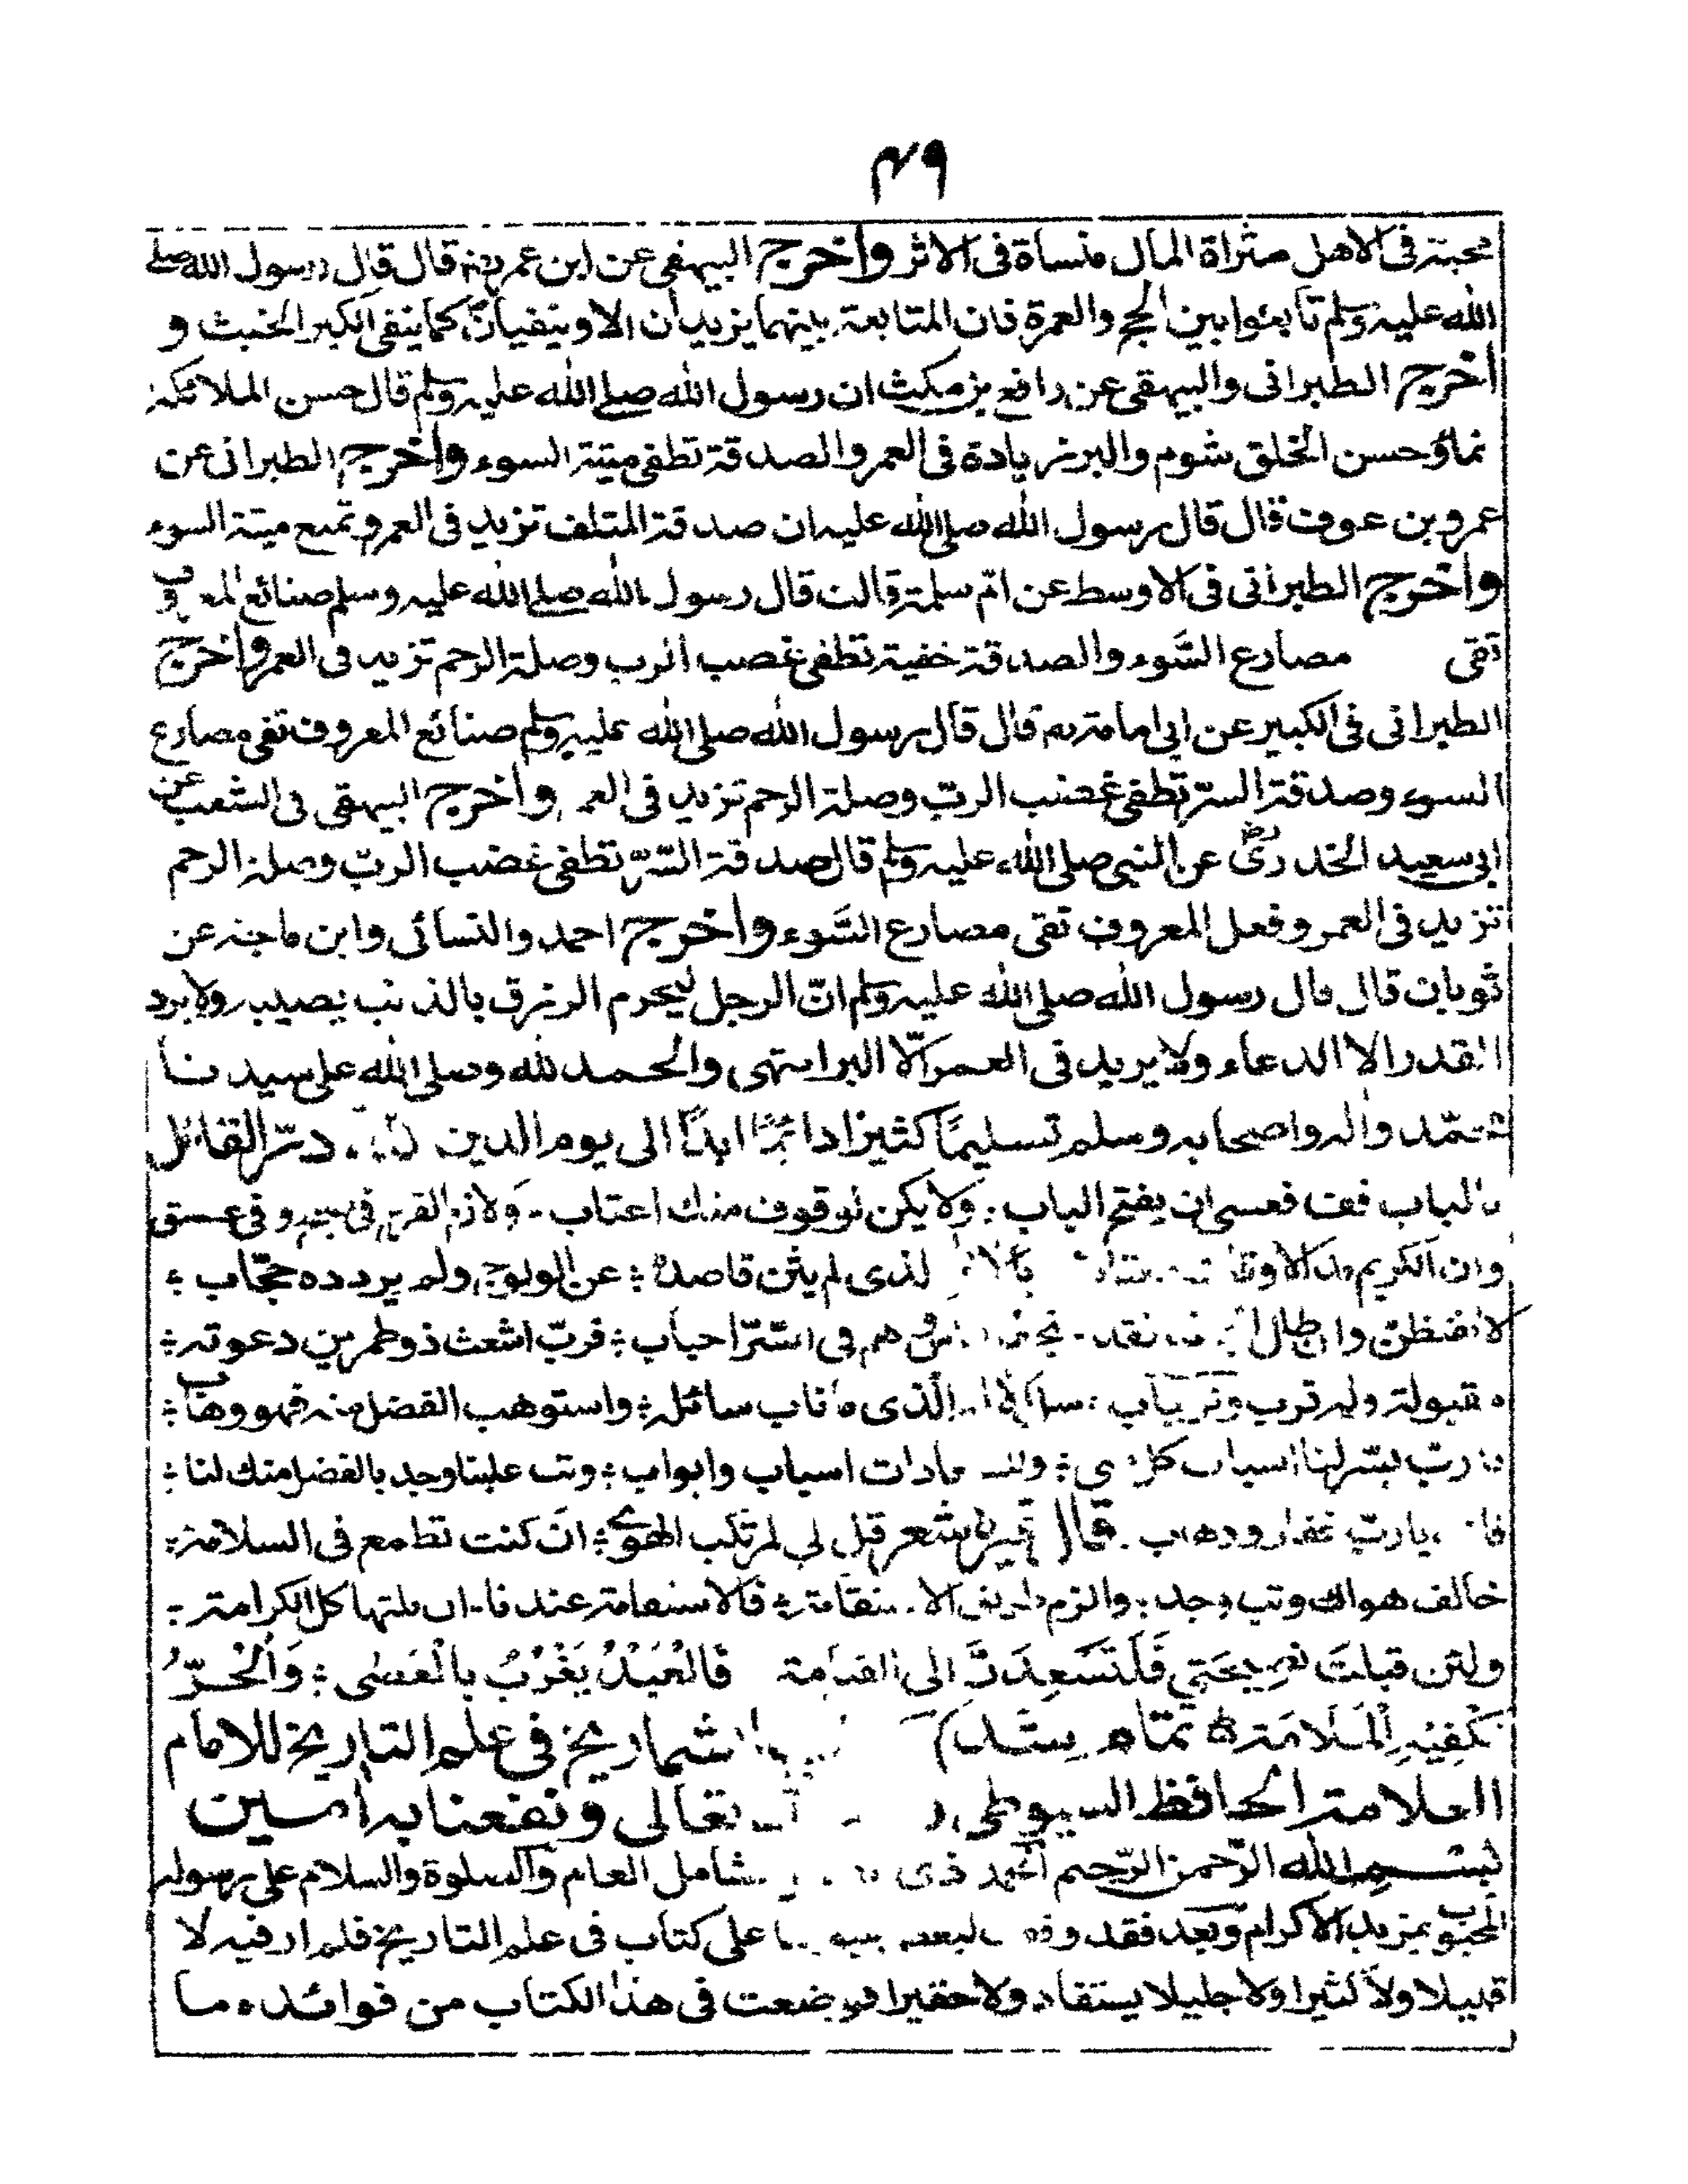 ٤٩
محبة فى الاهل مثراة المال منساة فى الاثر واخرج البيهقى عن ابن عمر رضه قال قال رسول الله صلى
الله عليه وسلم تابعوا بين الحج والعمرة فان المتابعة بينهما يزيدان الا وينفيان كما ينفى الكير الخبث و
اخرج الطبرانى والبيهقى عن رافع بن مكيث ان رسول الله صلى الله عليه وسلم قال حسن الملائكة
نماؤ حسن الخلق شوم والبر زيادة فى العمر والصدقة تطفى ميتة السوء واخرج الطبرانى عن
عمرو بن عوف قال قال رسول الله صلى الله عليه ان صدقة المتلف تزيد فى العمر وتمنع ميتة السوء
واخرج الطبرانى فى الاوسط عن ام سلمة قالت قال رسول الله صلى الله عليه وسلم صنائع المعروف
تقى مصارع السَّوء والصدقة خفية تطفى غضب الرب وصلة الرحم تزيد فى العمر واخرج
الطبرانى فى الكبير عن ابى امامة رضه قال قال رسول الله صلى الله عليه وسلم صنائع المعروف تقى مصارع
السوء وصدقة السر تطفى غضب الرب وصلة الرحم تزيد فى العمر واخرج البيهقى فى الشعب عن
ابى سعيد الخدرى رض عن النبى صلى الله عليه وسلم قال صدقة السّر تطفى غضب الرب وصلة الرحم
تزيد فى العمر وفعل المعروف تقى مصارع السَّوء واخرج احمد والنسائى وابن ماجه عن
ثوبان قال قال رسول الله صلى الله عليه وسلم انّ الرجل ليحرم الرزق بالذنب يصيبه ولا يرد
القدر الا الدعاء ولا يزيد فى العمر الّا البر انتهى والحمد لله وصلى الله على سيدنا
محمّد واله واصحابه وسلم تسليمًا كثيرا دائمًا ابدًا الى يوم الدين لله درّ القائل
بالباب قف فعسى ان يفتح الباب ؛ ولا يكن لوقوف منك اعتاب ۔ ولازم القرع فى وفى غسق
وان الكريم لذى لم يثن قاصدهُ ؛ عن الولوج ولم يردده حجّاب ؛
لا تقنطن وان طال هم فى السّر احباب ؛ فربّ اشعث ذو طمرين دعوته ؛
مقبولة وله قرب الّذى ما خاب سائله ؛ واستوهب الفضل منه فهو وهاب ؛
يا ربّ يسّر لنا اسباب كل اسباب وابواب ؛ وتب علينا وجد بالفضل منك لنا ؛
يا ربّ غفار ووهاب . قال غيره شعر قل لى لمرتكب الهوى ؛ ان كنت تطمع فى السلامة ؛
خالف هواك وتب وجد ؛ والزم طريق الاستقامة ؛ فالاستقامة عندنا كل الكرامة ؛
ولئن قبلتَ نصيحتى فَلَتَسْعِدَنَّ الى القيامة فَالْعَبْدُ يَغْرُبُ بِالْعَصٰى ؛ وَالْحُرُّ
تكْفِيْهِ الْمَلَامَةُ تمّام شد الشماريخ فى علم التاريخ للامام
العلامة الحافظ السيوطى تعالى ونفعنا به آمين
بسم الله الرّحمن الرّحيم الحمد ذى شامل العام والصلوة والسلام على رسوله
المحبوب بمزيد الاكرام وبعد فقد على كتاب فى علم التاريخ فلم ار فيه لا
قليلا ولا كثيرا ولا جليلا يستفاد ولا حقيرا فوضعت فى هذا الكتاب من فوائده ما